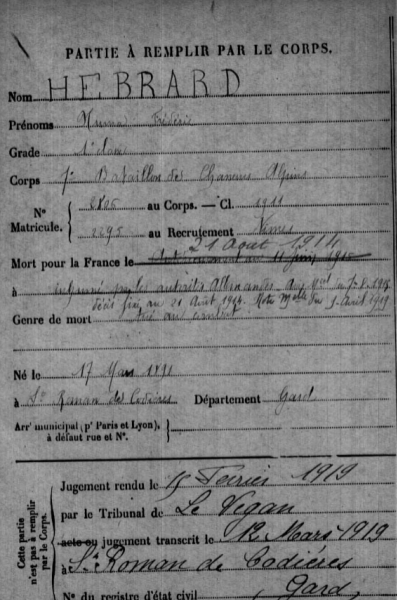 PARTIE À REMPLIR PAR LE CORPS.
Nom HEBRARD
Prénoms Numa Frédéric
Grade 1e classe
Corps 7e Bataillon de Chasseurs Alpins
N° Matricule. { au Corps. — Cl. 1911
2295 au Recrutement Nimes
21 Août 1914
Mort pour la France le antérieurement au 11 Juin 1915
à inhumé par les autorités Allemandes
décès fixé au 21 Août 1914.
Genre de mort tué au combat
Né le 17 Mars 1891
à St Roman de Codières Département Gard
Arrt municipal (pr Paris et Lyon), à défaut rue et N°. {
Cette partie n'est pas à remplir par le Corps.
Jugement rendu le Février 1919
par le Tribunal de Le Vigan
acte ou jugement transcrit le 12 Mars 1919
à St Roman de Codières
Gard
N° du registre d'état civil